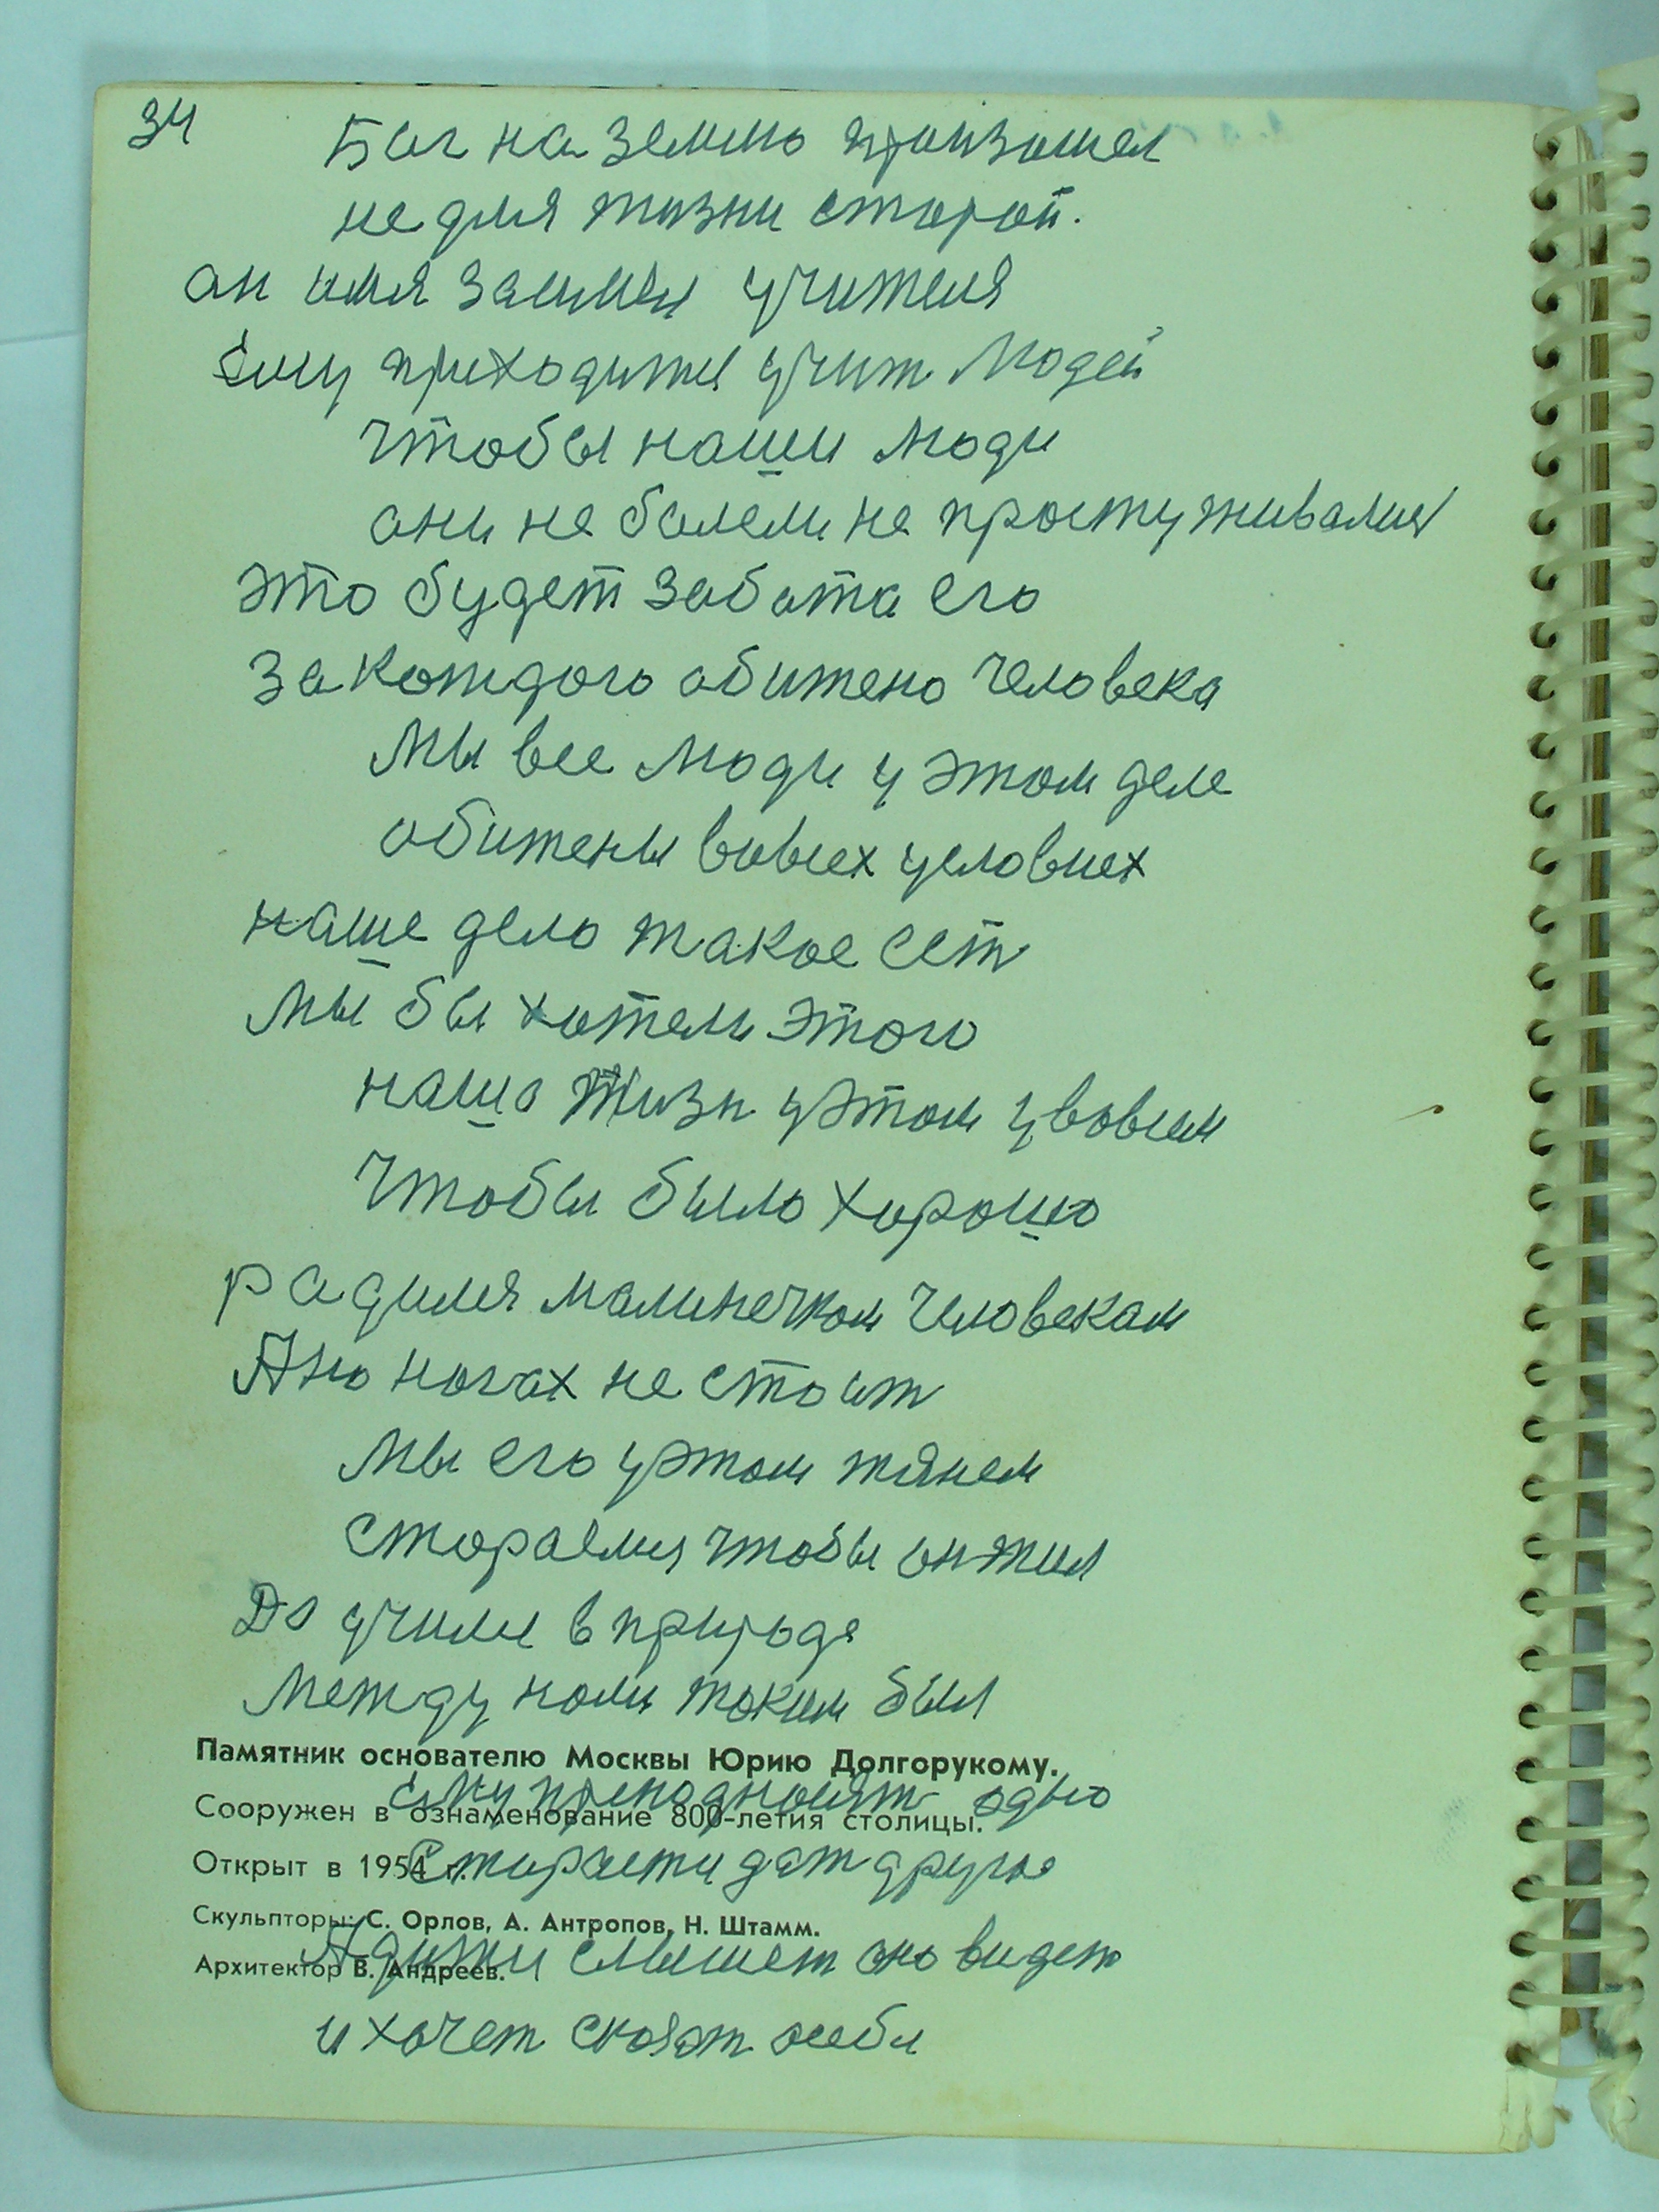 34
Бог на землю произошел
не для жизни старой.
он имя занимал учителя
Ему приходится учит людей
чтобы наши люди
они не болели не простуживались
это будет забота его
за кождого обижено человека
Мы все люди у этом деле
обижены вовсех условиех
наше дело такое ест
мы бы хотели этого
наша жизн у этом у вовсем
Чтобы было хорошо
радился малинечком человекам
А но ногах не стоит
мы его у этом тянем
стораемся чтобы он жил
До учили в природе
между нами таким был
Памятник основателю Москвы Юрию Долгорукому.
ему преподносят одно
Сооружен в ознаменование 800-летия столицы.
Открыт в 1954 г.
дат другое
Скульпторы: С. Орлов, А. Антропов, Н. Штамм.
слышет оно видет
Архитектор В. Андреев.
и хочет